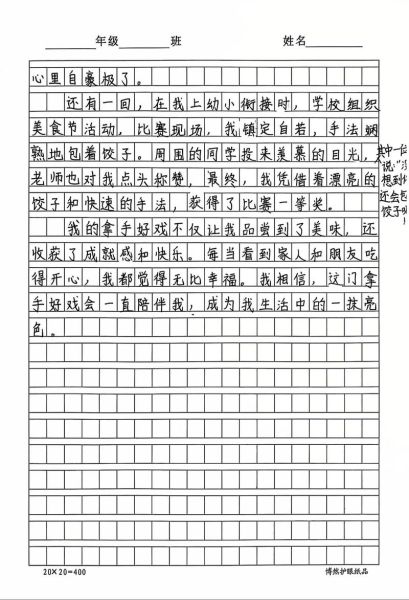 年级 班 姓名
心里自豪极了。
还有一回，在我上幼小衔接时，学校组织
美食节活动，比赛现场，我镇定自若，手法娴
熟地包着饺子。周围的同学投来羡慕的目光，
老师也对我点头称赞，最终，我凭借着漂亮的
饺子和快速的手法，获得了比赛一等奖。
我的拿手好戏不仅让我品尝到了美味，还
收获了成就感和快乐。每当看到家人和朋友吃
得开心，我都觉得无比幸福。我相信，这门拿
手好戏会一直陪伴我，成为我生活中的一抹亮
色。
其中一
说："
想到
还会包
饺子
20×20=400
博然护眼纸品